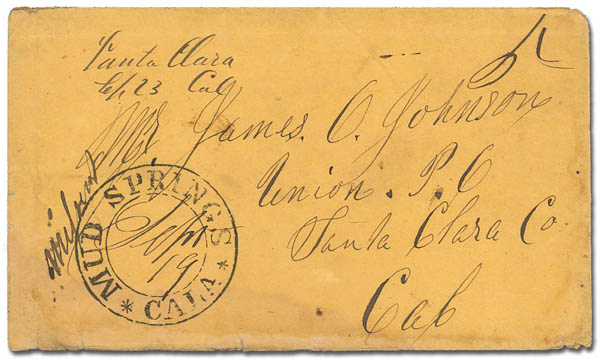 Santa Clara
Sep, 23 Cal
Mr James. O. Johnson
Union. P. O
Santa Clara Co
Cal
MUD SPRINGS
Sept
19
* CALA *